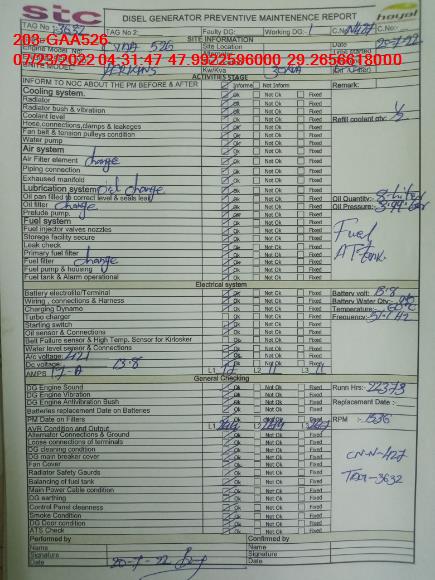 stc
DISEL GENERATOR PREVENTIVE MAINTENENCE REPORT
hayal
TAG No 1: 3632 TAG No 2: Faulty DG: Working DG: 1
203-GAA526
SITE INFORMATION
Site Location
Date 20-7-22
07/23/2022 04:31:47 47.9922596000 29.2656618000
Kw/Kva 30KVA
ACTIVITIES STAGE
INFORM TO NOC ABOUT THE PM BEFORE & AFTER Informe Not Inform Remark:
Cooling system. Ok Not Ok Fixed
Radiator Ok Not Ok Fixed
Radiator bush & vibration Ok Not Ok Fixed
Coolant level Ok Not Ok Fixed Refill coolant qty:
Hose,connections,clamps & leakeges Ok Not Ok Fixed
Fan belt & tension pulleys condition Ok Not Ok Fixed
Water pump Ok Not Ok Fixed
Air system
Air Filter element change Ok Not Ok Fixed
Piping connection Ok Not Ok Fixed
Exhausted manifold Ok Not Ok Fixed
Lubrication system oil change Ok Not Ok Fixed
Oil pan filled to correct level & seals leak Ok Not Ok Fixed Oil Quantity:
Oil filter change Ok Not Ok Fixed Oil Pressure:
Prelude pump. Ok Not Ok Fixed
Fuel system
Fuel
Fuel injector valves nozzles Ok Not Ok Fixed
Storage facility secure Ok Not Ok Fixed
Leak check Ok Not Ok Fixed
Primary fuel filter Ok Not Ok Fixed
Fuel filter change Ok Not Ok Fixed
Fuel pump & housing Ok Not Ok Fixed
Fuel tank & Alarm operational Ok Not Ok Fixed
Electrical system
Battery electrolite/Terminal Ok Not Ok Fixed Battery volt: 13.8
Wiring , connections & Harness Ok Not Ok Fixed Battery Water Qty:
Charging Dynamo Ok Not Ok Fixed Temperature:
Turbo charger Ok Not Ok Fixed Frequency: 51.1 HZ
Starting switch Ok Not Ok Fixed
Oil sensor & Connections Ok Not Ok Fixed
Belt Failure sensor & High Temp. Sensor for Kirlosker Ok Not Ok Fixed
Water level sensor & Connections Ok Not Ok Fixed
A/c voltage: 421 Ok Not Ok Fixed
Dc voltage: 13.8 Ok Not Ok Fixed
AMPS L1 L2 L3
General Checking
DG Engine Sound Ok Not Ok Fixed Runn Hrs:- 22373
DG Engine Vibration Ok Not Ok Fixed
DG Engine Antivibration Bush Ok Not Ok Fixed Replacement Date :-
Batteries replacement Date on Batteries Ok Not Ok Fixed
PM Date on Filters Ok Not Ok Fixed RPM :- 1536
AVR Condition and Output L1 L2 L3
Alternator Connections & Ground Ok Not Ok Fixed
Loose connections of terminals Ok Not Ok Fixed
DG cleaning condition Ok Not Ok Fixed
DG main breaker cover Ok Not Ok Fixed CN-N-427
Fan Cover Ok Not Ok Fixed
Radiator Safety Gaurds Ok Not Ok Fixed TAG-3632
Balancing of fuel tank Ok Not Ok Fixed
Main Power Cable condition Ok Not Ok Fixed
DG earthing Ok Not Ok Fixed
Control Panel cleanness Ok Not Ok Fixed
Smoke Condition Ok Not Ok Fixed
DG Door condition Ok Not Ok Fixed
ATS Check Ok Not Ok Fixed
Performed by Confirmed by
Name Name
Signature Signature
Date 20-7-22 Date